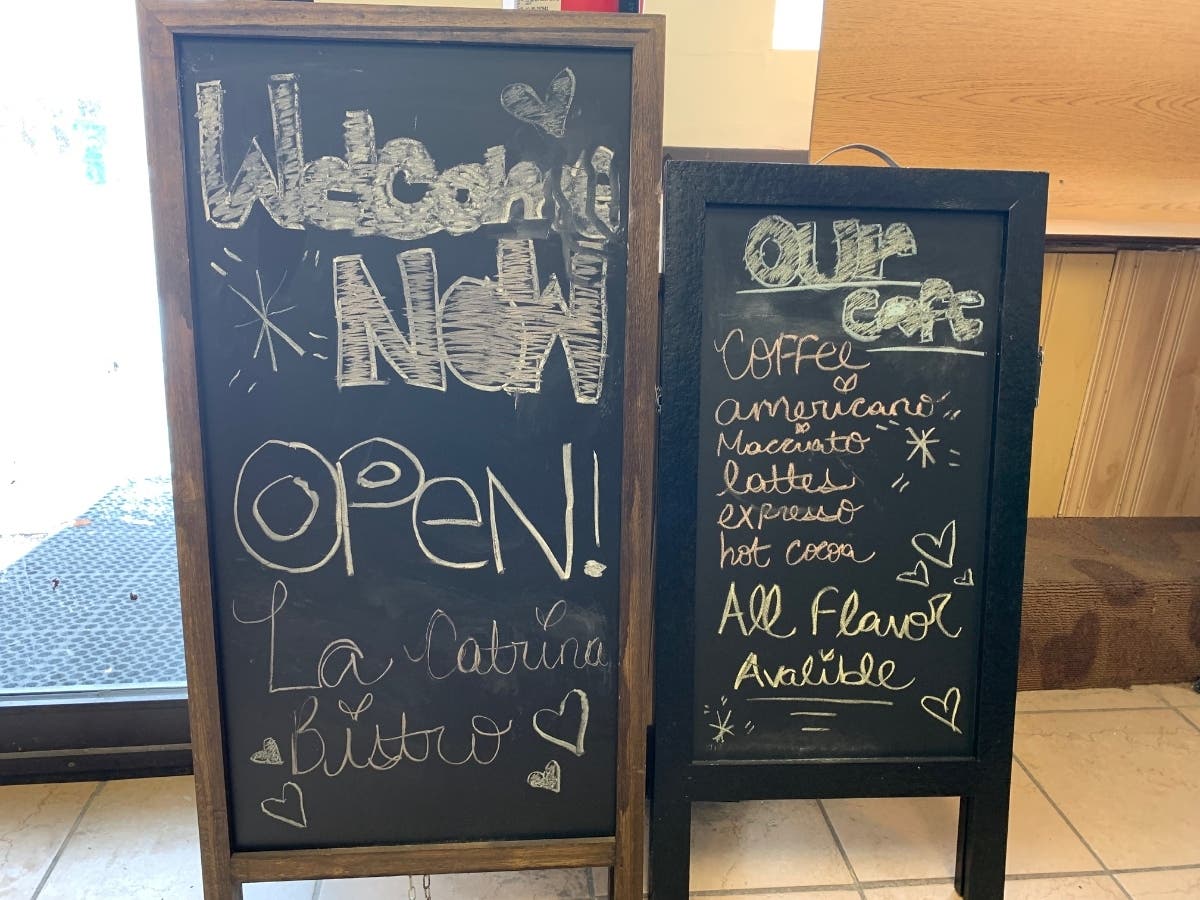 Welcome
NOW
OPEN!
La Catrina
Bistro
OUr
cafe
COFFEE
americano
Macciato
lattes
expresso
hot cocoa
All Flavor
Avalible